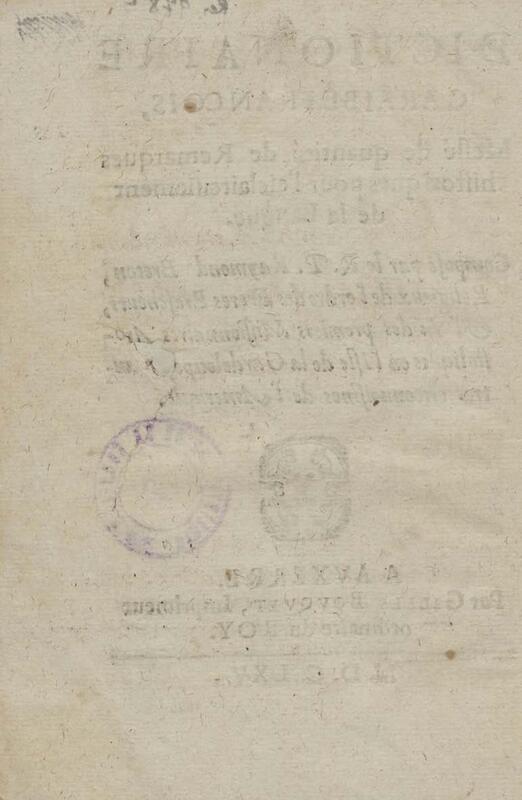 DICTIONAIRE
CARAIBE FRANCOIS,
Meslé de quantité de Remarques
historiques pour l'esclaircissement
de la Langue.
Composé par le R. P. Raymond Breton,
Religieux de l'ordre des Freres Prescheurs,
des premiers Missionnaires Apo-
stoliques en l'Isle de la Gardeloupe
circonuoisines de l'Amerique.
A AVXERRE,
Par GILLES BOVQVET, Imprimeur
ordinaire du ROY.
M. D. C. LXV.